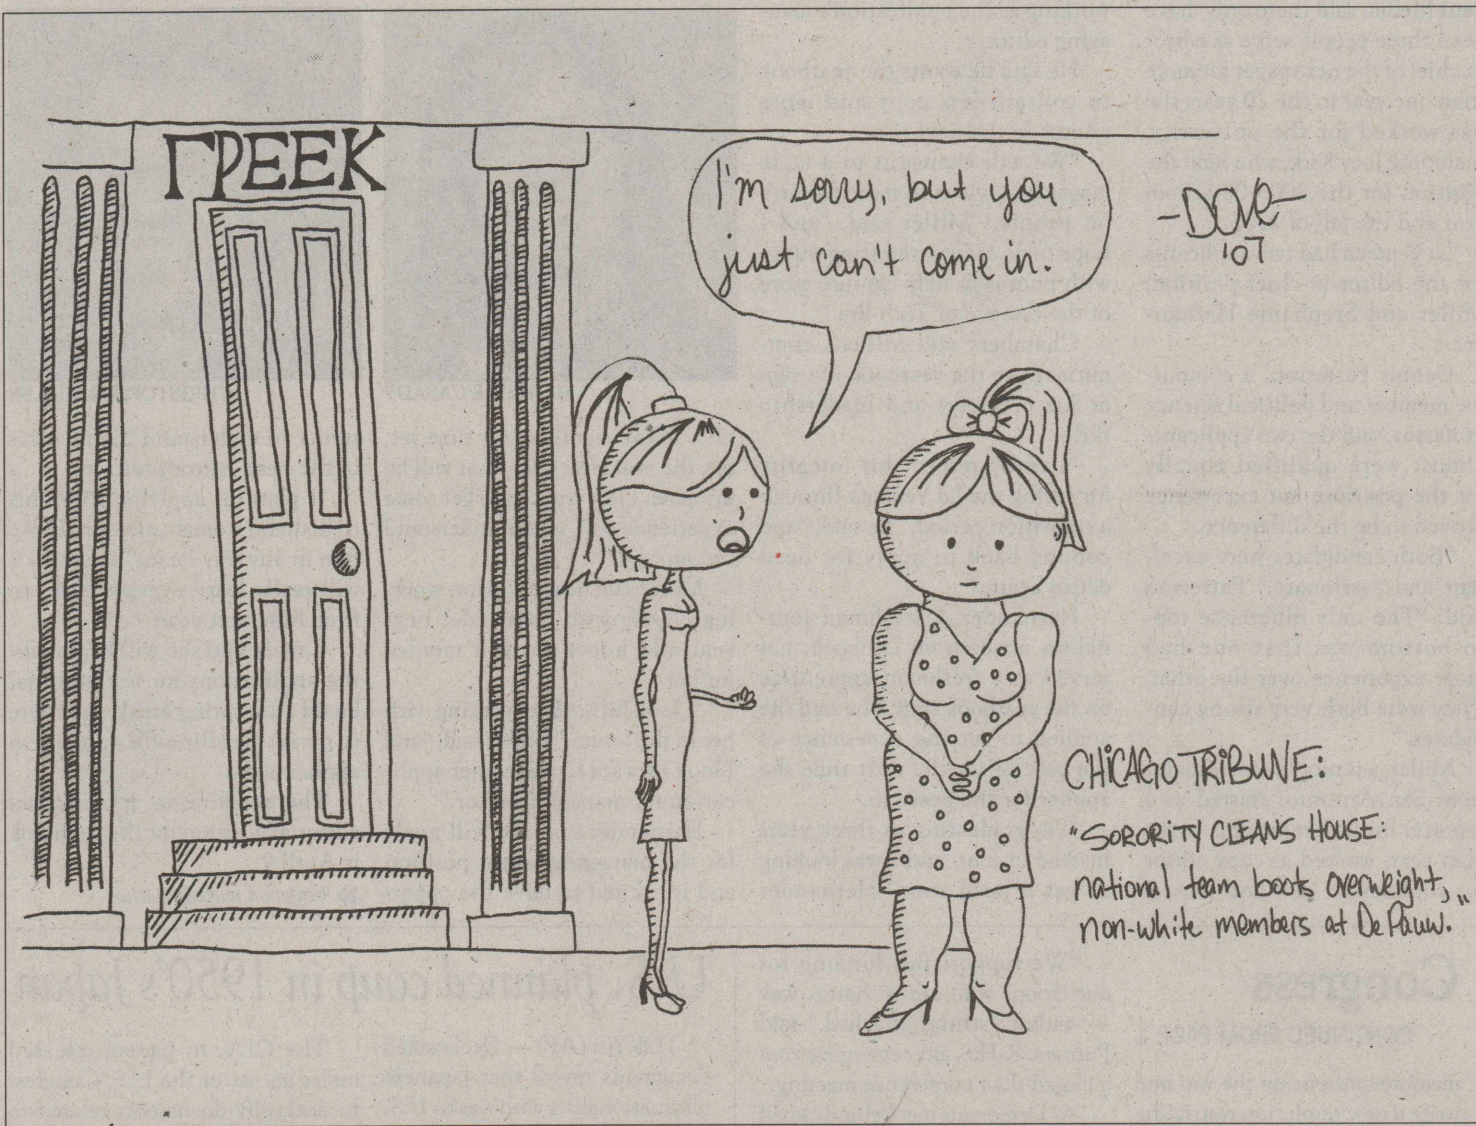 ΓΡΕΕΚ
I'm sorry, but you
just can't come in.
-DOVE-
'07
CHICAGO TRIBUNE:
"SORORITY CLEANS HOUSE:
national team boots overweight,
non-white members at DePauw."